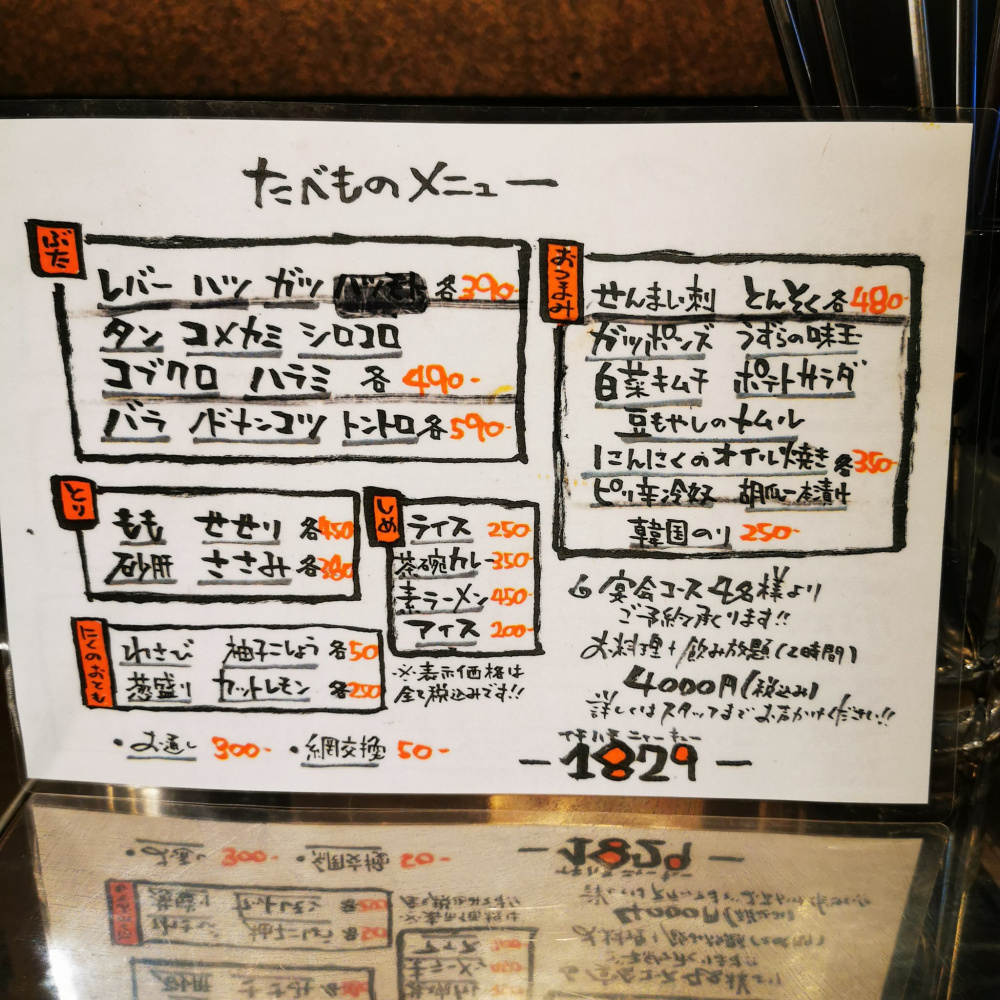 たべものメニュー
ぶた
レバー ハツ ガツ 各390-
タン コメカミ シロコロ
コブクロ ハラミ 各490-
バラ ノドナンコツ トントロ各590-
おつまみ
せんまい刺 とんそく各480-
ガツポンズ うずらの味玉
白菜キムチ ポテトサラダ
豆もやしのナムル
にんにくのオイル焼き 各350-
ピリ辛冷奴 胡瓜一本漬け
韓国のり 250-
とり
もも せせり 各450
砂肝 ささみ 各380
しめ
ライス 250
茶碗カレー350-
素ラーメン450
アイス 200-
※表示価格は
全て税込みです!!
にくのおとも
わさび 柚子こしょう 各50
カットレモン 各250
・お通し 300- ・網交換 50-
宴会コース 4名様より
ご予約承ります!!
お料理+飲み放題(2時間)
4000円(税込み)
詳しくはスタッフまでお声かけください!!
-1829-